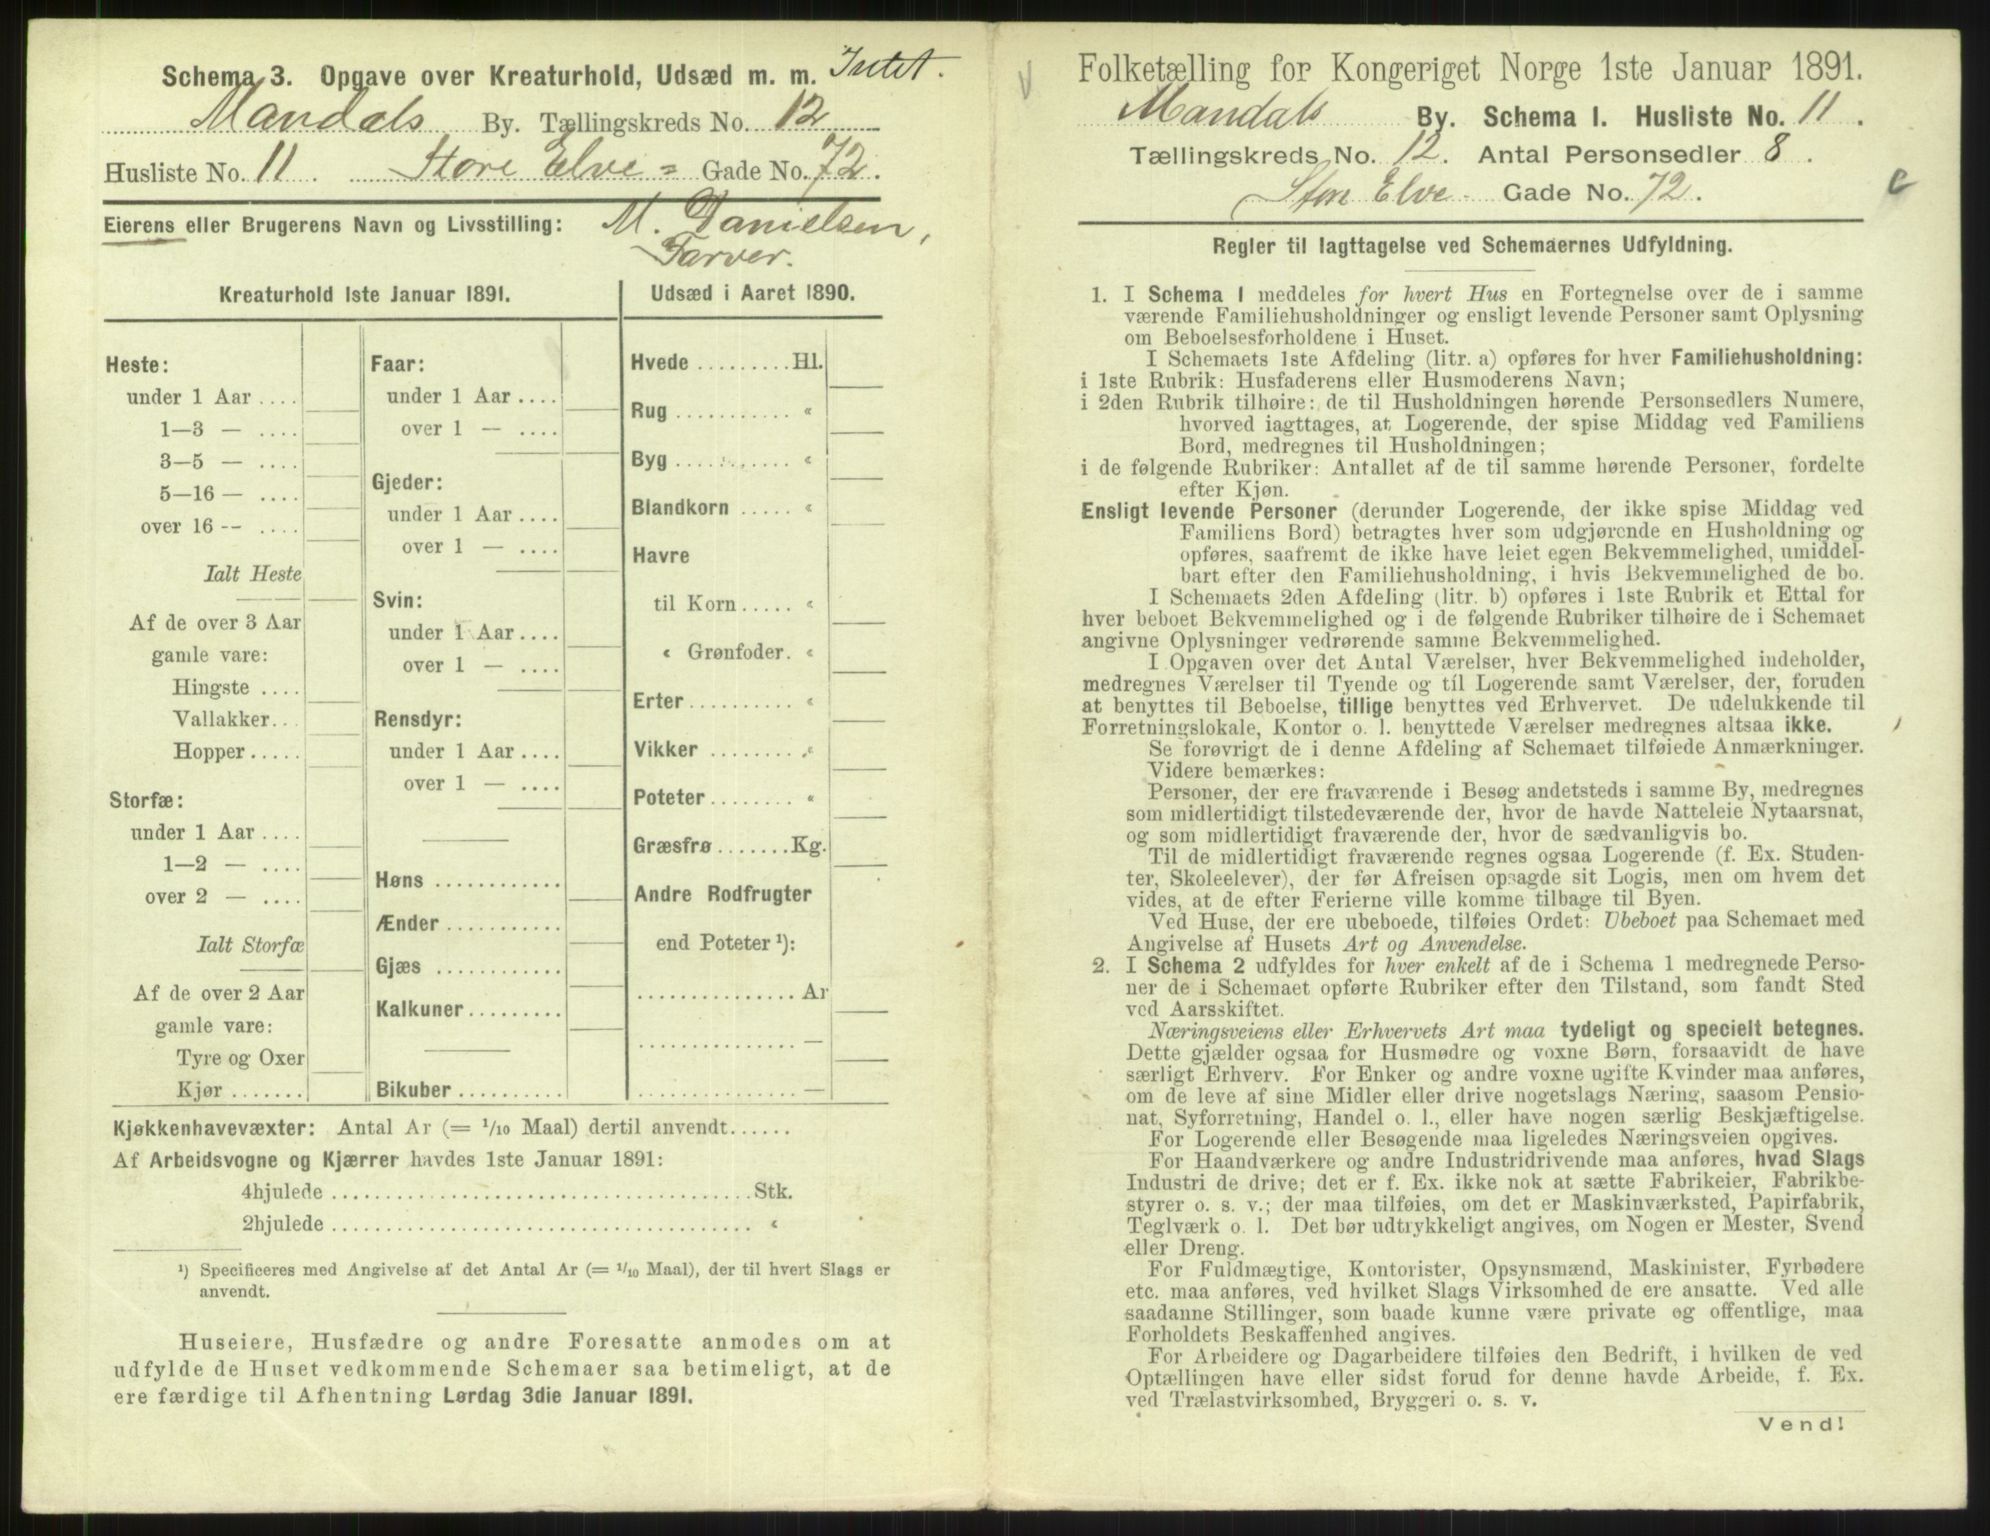 Schema 3. Opgave over Kreaturhold, Udsæd m. m. Intet.
Mandals By. Tællingskreds No. 12
Husliste No. 11. Store Elve = Gade No. 72.
Eierens eller Brugerens Navn og Livsstilling: M. Danielsen,
Farver.
Kreaturhold 1ste Januar 1891.
Heste:
under 1 Aar ....
1—3 — ....
3—5 — ....
5—16 — ....
over 16 -- ....
Ialt Heste
Af de over 3 Aar
gamle vare:
Hingste ....
Vallakker...
Hopper.....
Storfæ:
under 1 Aar ....
1—2 — ....
over 2 — ....
Ialt Storfæ
Af de over 2 Aar
gamle vare:
Tyre og Oxer
Kjør .......
Faar:
under 1 Aar ....
over 1 — ....
Gjeder:
under 1 Aar ....
over 1 — ....
Svin:
under 1 Aar ....
over 1 — ....
Rensdyr:
under 1 Aar ....
over 1 — ....
Høns ............
Ænder ...........
Gjæs ............
Kalkuner.........
Bikuber ..........
Udsæd i Aaret 1890.
Hvede .........Hl.
Rug ........... «
Byg ........... «
Blandkorn ..... «
Havre
til Korn ..... «
« Grønfoder. «
Erter.......... «
Vikker ........ «
Poteter........ «
Græsfrø .......Kg.
Andre Rodfrugter
end Poteter ¹):
...............Ar
............... —
............... —
Kjøkkenhavevæxter: Antal Ar (= 1/10 Maal) dertil anvendt......
Af Arbeidsvogne og Kjærrer havdes 1ste Januar 1891:
4hjulede ........................................Stk.
2hjulede ........................................ «
¹) Specificeres med Angivelse af det Antal Ar (= 1/10 Maal), der til hvert Slags er
anvendt.
Huseiere, Husfædre og andre Foresatte anmodes om at
udfylde de Huset vedkommende Schemaer saa betimeligt, at de
ere færdige til Afhentning Lørdag 3die Januar 1891.
Folketælling for Kongeriget Norge 1ste Januar 1891.
Mandals By. Schema I. Husliste No. 11.
Tællingskreds No. 12. Antal Personsedler 8.
Stor Elve- Gade No. 72.
Regler til Iagttagelse ved Schemaernes Udfyldning.
1. I Schema I meddeles for hvert Hus en Fortegnelse over de i samme
værende Familiehusholdninger og ensligt levende Personer samt Oplysning
om Beboelsesforholdene i Huset.
I Schemaets 1ste Afdeling (litr. a) opføres for hver Familiehusholdning:
i 1ste Rubrik: Husfaderens eller Husmoderens Navn;
i 2den Rubrik tilhøire: de til Husholdningen hørende Personsedlers Numere,
hvorved iagttages, at Logerende, der spise Middag ved Familiens
Bord, medregnes til Husholdningen;
i de følgende Rubriker: Antallet af de til samme hørende Personer, fordelte
efter Kjøn.
Ensligt levende Personer (derunder Logerende, der ikke spise Middag ved
Familiens Bord) betragtes hver som udgjørende en Husholdning og
opføres, saafremt de ikke have leiet egen Bekvemmelighed, umiddel-
bart efter den Familiehusholdning, i hvis Bekvemmelighed de bo.
I Schemaets 2den Afdeling (litr. b) opføres i 1ste Rubrik et Ettal for
hver beboet Bekvemmelighed og i de følgende Rubriker tilhøire de i Schemaet
angivne Oplysninger vedrørende samme Bekvemmelighed.
I Opgaven over det Antal Værelser, hver Bekvemmelighed indeholder,
medregnes Værelser til Tyende og til Logerende samt Værelser, der, foruden
at benyttes til Beboelse, tillige benyttes ved Erhvervet. De udelukkende til
Forretningslokale, Kontor o. l. benyttede Værelser medregnes altsaa ikke.
Se forøvrigt de i denne Afdeling af Schemaet tilføiede Anmærkninger.
Videre bemærkes:
Personer, der ere fraværende i Besøg andetsteds i samme By, medregnes
som midlertidigt tilstedeværende der, hvor de havde Natteleie Nytaarsnat,
og som midlertidigt fraværende der, hvor de sædvanligvis bo.
Til de midlertidigt fraværende regnes ogsaa Logerende (f. Ex. Studen-
ter, Skoleelever), der før Afreisen opsagde sit Logis, men om hvem det
vides, at de efter Ferierne ville komme tilbage til Byen.
Ved Huse, der ere ubeboede, tilføies Ordet: Ubeboet paa Schemaet med
Angivelse af Husets Art og Anvendelse.
2. I Schema 2 udfyldes for hver enkelt af de i Schema 1 medregnede Perso-
ner de i Schemaet opførte Rubriker efter den Tilstand, som fandt Sted
ved Aarsskiftet.
Næringsveiens eller Erhvervets Art maa tydeligt og specielt betegnes.
Dette gjælder ogsaa for Husmødre og voxne Børn, forsaavidt de have
særligt Erhverv. For Enker og andre voxne ugifte Kvinder maa anføres,
om de leve af sine Midler eller drive nogetslags Næring, saasom Pensio-
nat, Syforretning, Handel o. l., eller have nogen særlig Beskjæftigelse.
For Logerende eller Besøgende maa ligeledes Næringsveien opgives.
For Haandværkere og andre Industridrivende maa anføres, hvad Slags
Industri de drive; det er f. Ex. ikke nok at sætte Fabrikeier, Fabrikbe-
styrer o. s. v.; der maa tilføies, om det er Maskinværksted, Papirfabrik,
Teglværk o. l. Det bør udtrykkeligt angives, om Nogen er Mester, Svend
eller Dreng.
For Fuldmægtige, Kontorister, Opsynsmænd, Maskinister, Fyrbødere
etc. maa anføres, ved hvilket Slags Virksomhed de ere ansatte. Ved alle
saadanne Stillinger, som baade kunne være private og offentlige, maa
Forholdets Beskaffenhed angives.
For Arbeidere og Dagarbeidere tilføies den Bedrift, i hvilken de ved
Optællingen have eller sidst forud for denne havde Arbeide, f. Ex.
ved Trælastvirksomhed, Bryggeri o. s. v.
Vend!